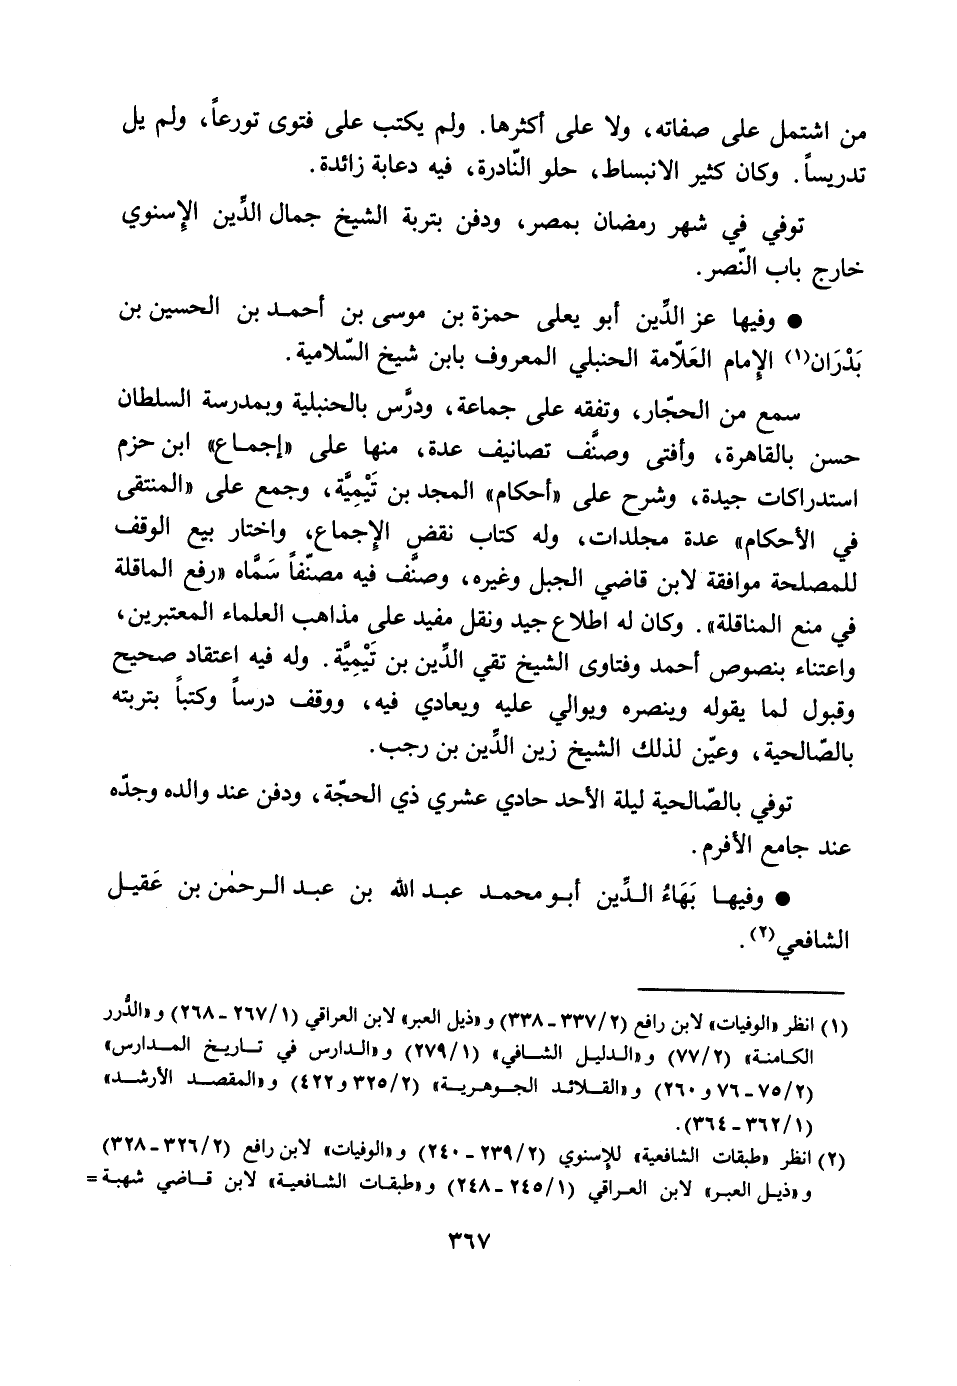 من اشتمل على صفاته، ولا على أكثرها. ولم يكتب على فتوى تورعاً، ولم يل
تدريساً. وكان كثير الانبساط، حلو النّادرة، فيه دعابة زائدة.
توفي في شهر رمضان بمصر، ودفن بتربة الشيخ جمال الدِّين الإسنوي
خارج باب النّصر.
● وفيها عز الدِّين أبو يعلى حمزة بن موسى بن أحمد بن الحسين بن
بَدْرَان(١) الإمام العَلّامة الحنبلي المعروف بابن شيخ السّلامية.
سمع من الحجّار، وتفقه على جماعة، ودرَّس بالحنبلية وبمدرسة السلطان
حسن بالقاهرة، وأفتى وصنَّف تصانيف عدة، منها على «إجماع» ابن حزم
استدراكات جيدة، وشرح على «أحكام» المجد بن تَيْمِيَّة، وجمع على «المنتقى
في الأحكام» عدة مجلدات، وله كتاب نقض الإجماع، واختار بيع الوقف
للمصلحة موافقة لابن قاضي الجبل وغيره، وصنَّف فيه مصنّفاً سَمَّاه «رفع الماقلة
في منع المناقلة». وكان له اطلاع جيد ونقل مفيد على مذاهب العلماء المعتبرين،
واعتناء بنصوص أحمد وفتاوى الشيخ تقي الدِّين بن تَيْمِيَّة. وله فيه اعتقاد صحيح
وقبول لما يقوله وينصره ويوالي عليه ويعادي فيه، ووقف درساً وكتباً بتربته
بالصّالحية، وعيّن لذلك الشيخ زين الدِّين بن رجب.
توفي بالصّالحية ليلة الأحد حادي عشري ذي الحجّة، ودفن عند والده وجدّه
عند جامع الأفرم.
● وفيها بَهَاءُ الدِّين أبو محمد عبد الله بن عبد الرحمٰن بن عَقيل
الشافعي(٢).
(١) انظر «الوفيات» لابن رافع (٢/٣٣٧ـ٣٣٨) و«ذيل العبر» لابن العراقي (١/٢٦٧ـ٢٦٨) و«الدُّرر
الكامنة» (٢/٧٧) و«الدليل الشافي» (١/٢٧٩) و«الدارس في تاريخ المدارس»
(٢/٧٥ـ٧٦ و٢٦٠) و«القلائد الجوهرية» (٢/٣٢٥ و٤٢٢) و«المقصد الأرشد»
(١/٣٦٢ـ٣٦٤).
(٢) انظر «طبقات الشافعية» للإسنوي (٢/٢٣٩ـ٢٤٠) و«الوفيات» لابن رافع (٢/٣٢٦ـ٣٢٨)
و«ذيل العبر» لابن العراقي (١/٢٤٥ـ٢٤٨) و«طبقات الشافعية» لابن قاضي شهبة =
٣٦٧